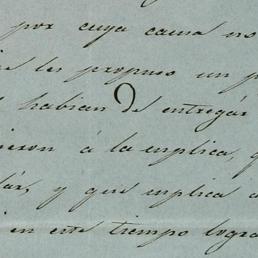 por cuya causa no
les propuso un
habian de entregár
á la suplica,
y que suplica
en este tiempo logra